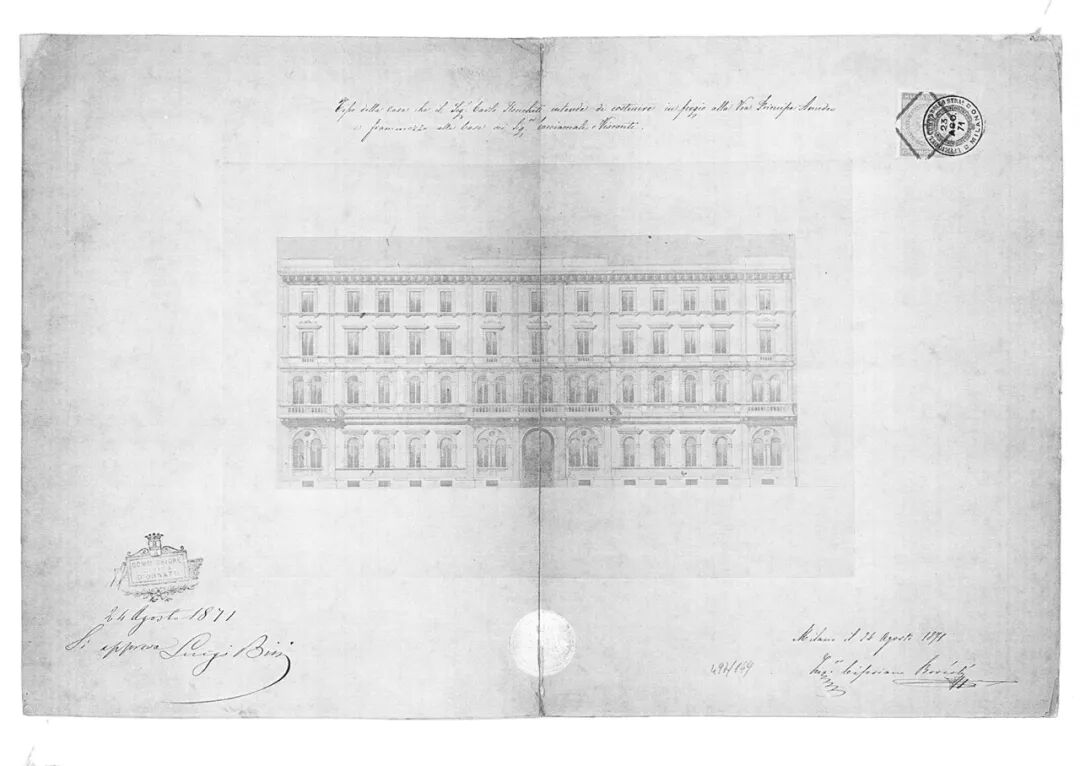 Tipo della casa che il Sig.r Carlo intende di costruire in fregio alla Via Principe Amedeo
e frammezzo alle Case dei Sig.ri e Visconti.
MILANO
23
AGO
71
COMMISSIONE
D'ORNATO
24 Agosto 1871
Si approva Luigi Bisi
Milano il 24 Agosto 1871
Ing.r
491/159